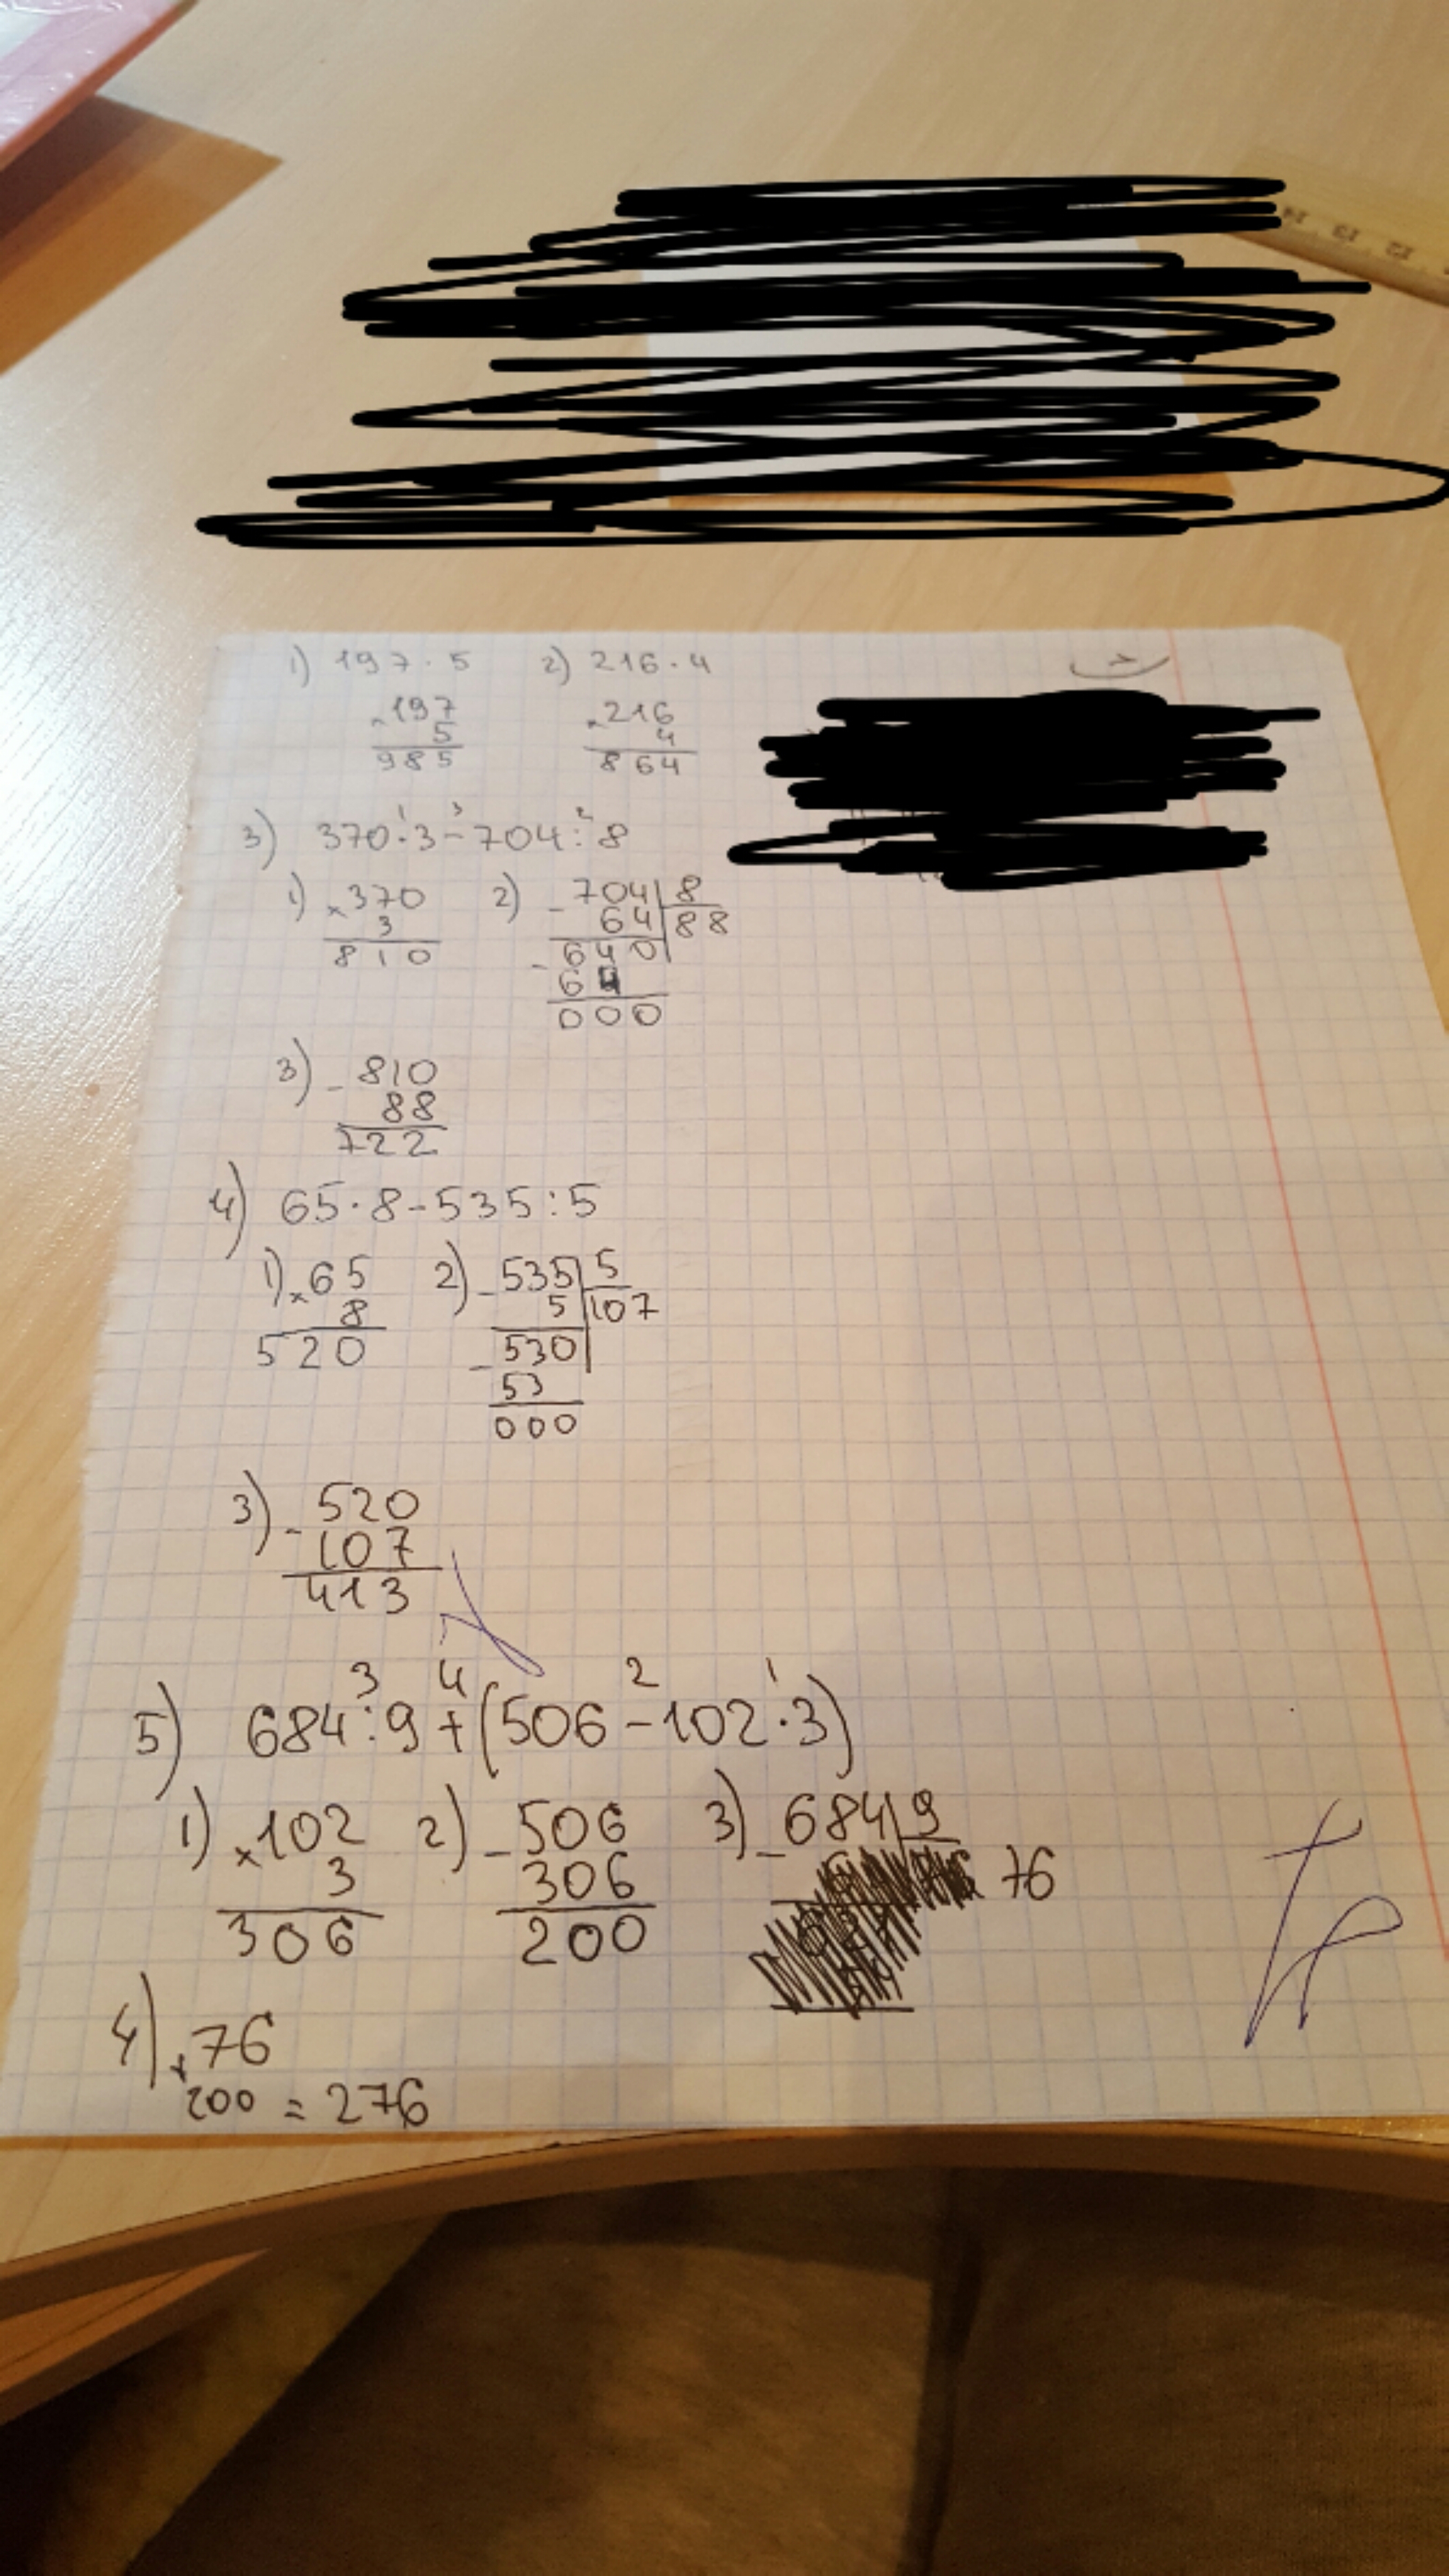 1) 197 · 5 2) 216 · 4
× 197 × 216
5 4
985 864
3) 370 · 3 - 704 : 8
1 3 2
1) × 370 2) - 704 8
3 64 88
810 - 640
64
000
3) - 810
88
722
4) 65 · 8 - 535 : 5
1) × 65 2) - 535 5
8 5 107
520 - 530
53
000
3) - 520
107
413
3 4 2 1
5) 684 : 9 + (506 - 102 · 3)
1) × 102 2) - 506 3) - 684 9
3 306 76
306 200
4) + 76
200 = 276
14 13 12